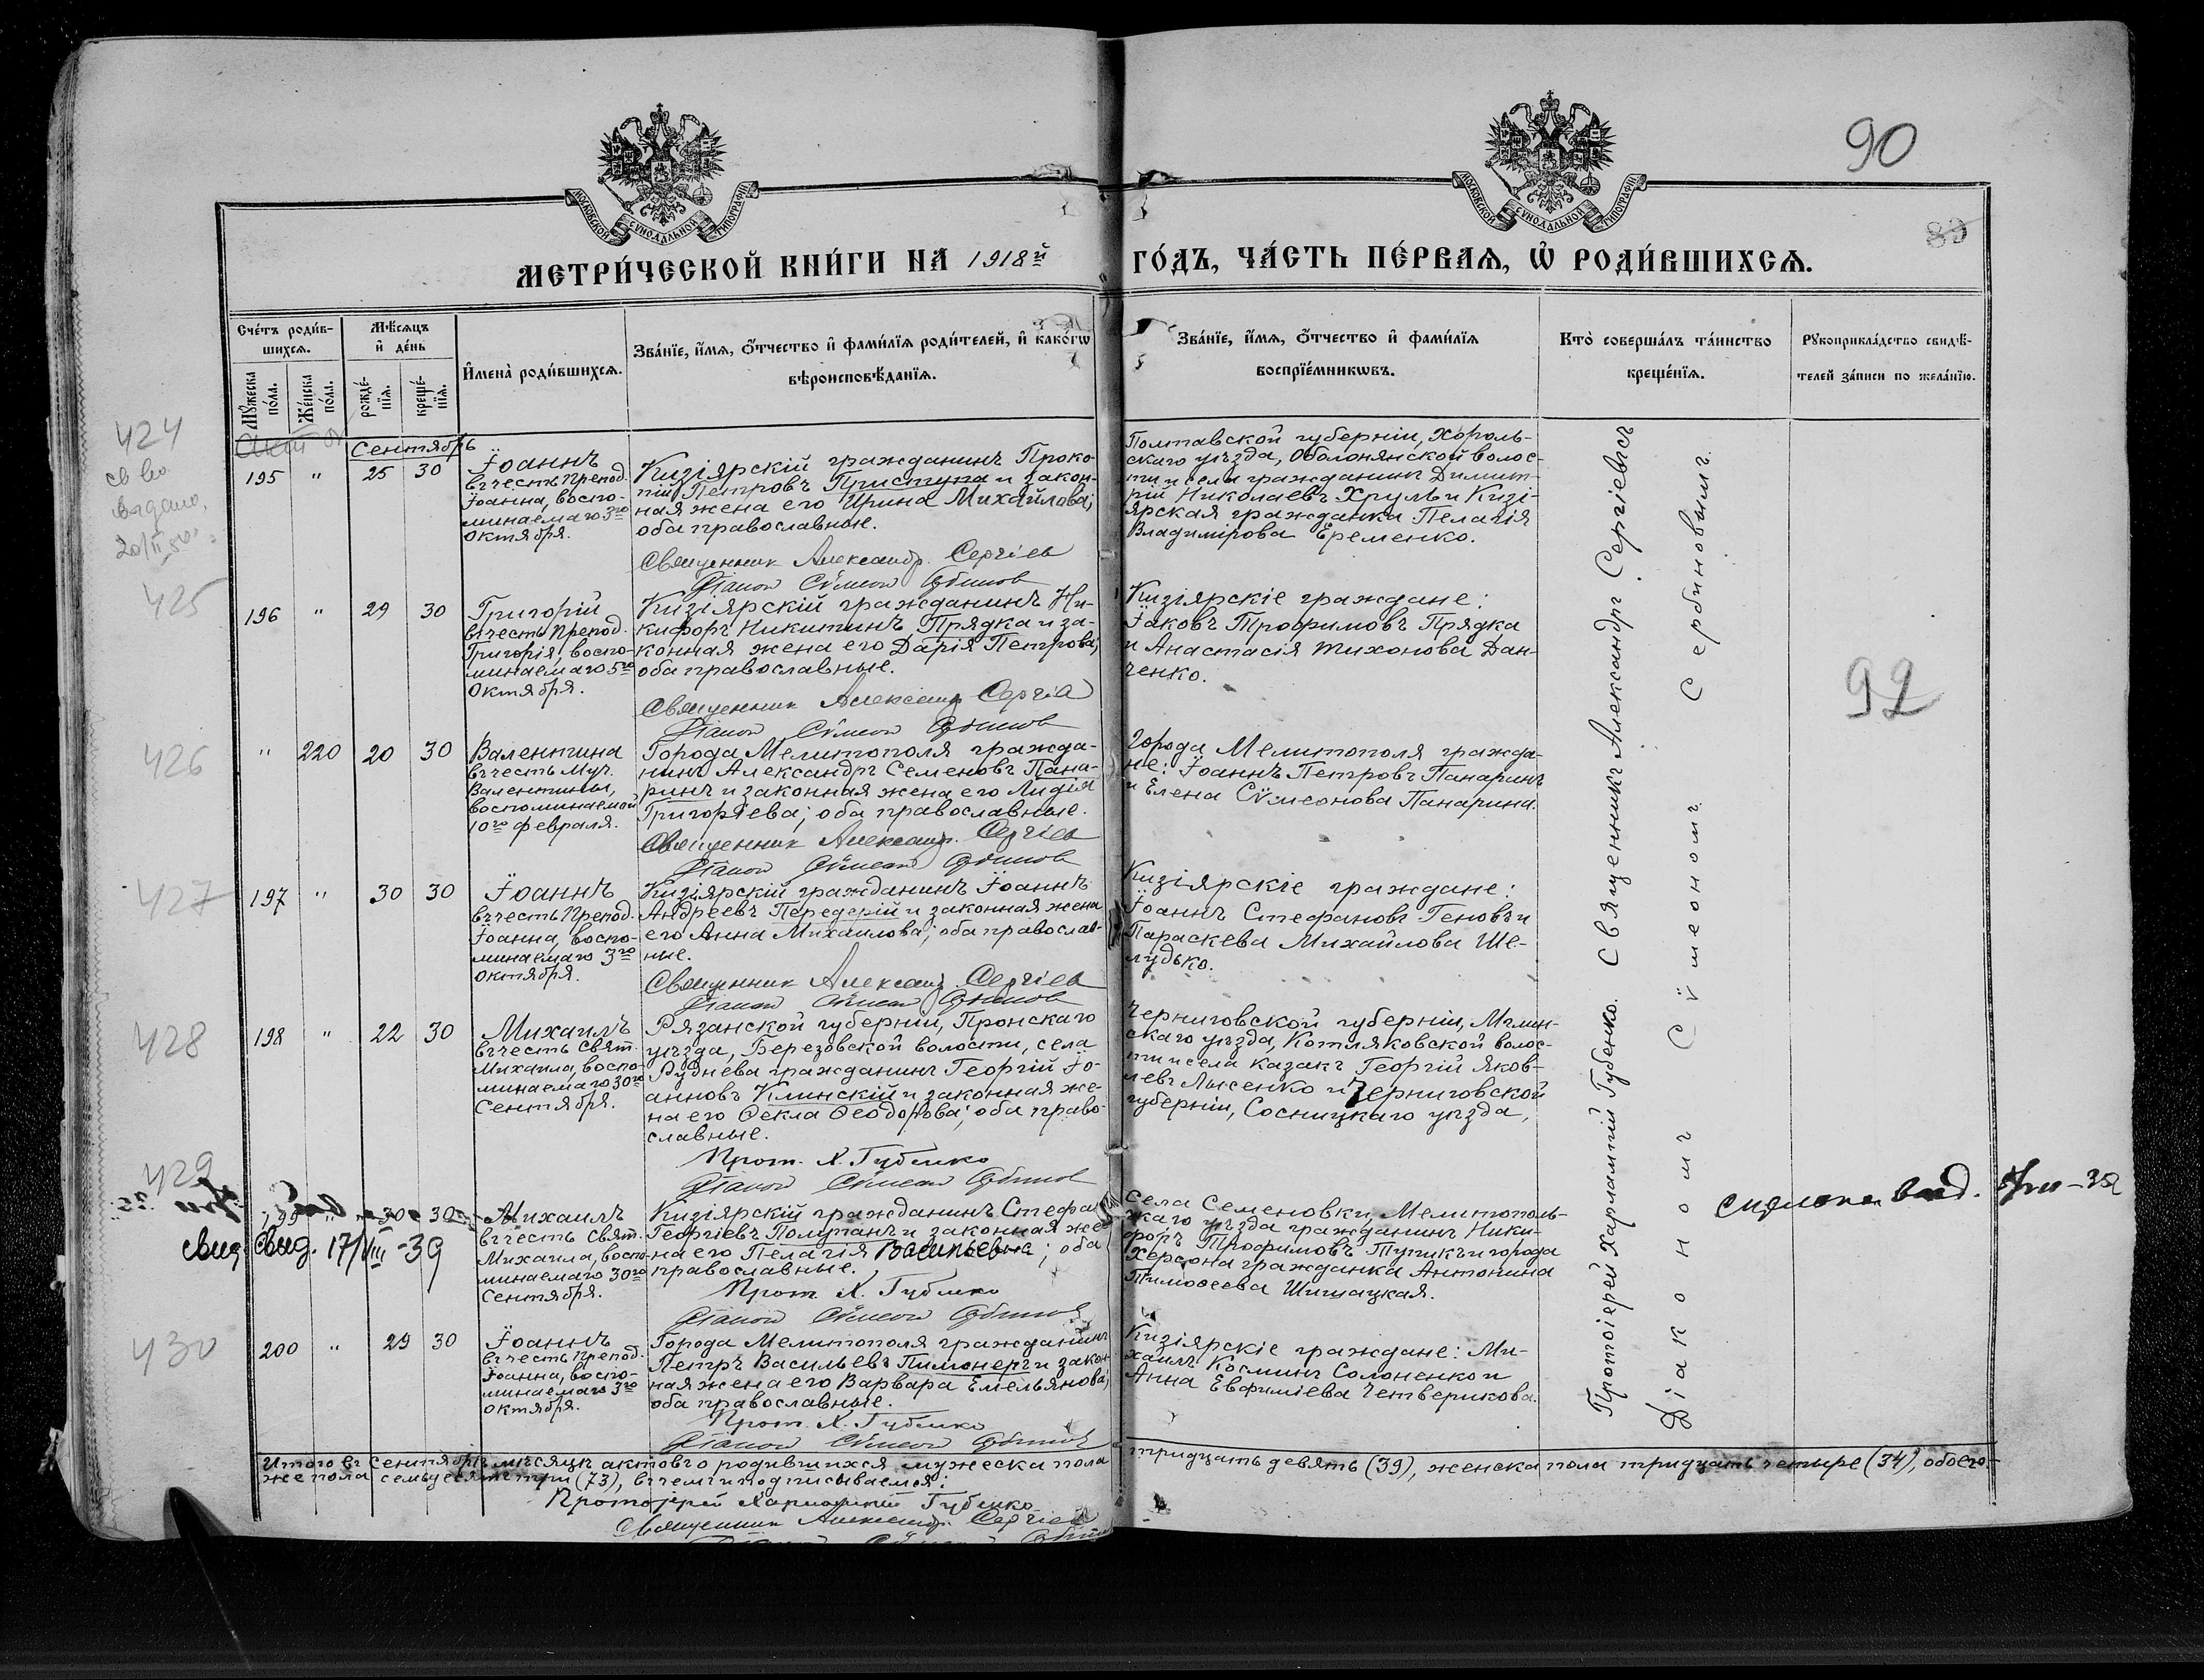 90
89
МОСКОВСКОЙ СѴНОДАЛЬНОЙ ТИПОГРАФІИ
МОСКОВСКОЙ СѴНОДАЛЬНОЙ ТИПОГРАФІИ
МЕТРИ́ЧЕСКОЙ КНИ́ГИ НА 1918й
ГО́ДЪ, ЧА́СТЬ ПЕ́РВАѦ, Ѡ РОДИ́ВШИХСѦ.
Сче́тъ роди́в-
шихсѧ.
Мꙋ́жеска по́ла.
Же́нска по́ла.
Мѣ́сѧцъ
и҆ де́нь
рожде́-
нїѧ.
креще́-
нїѧ.
И҆мена̀ роди́вшихсѧ.
Зва́нїе, и҆́мѧ, ѻ҆́тчество и҆ фами́лїѧ роди́телей, и҆ како́гѡ
вѣроисповѣ́данїѧ.
Зва́нїе, и҆́мѧ, ѻ҆́тчество и҆ фами́лїѧ
воспрїе́мникѡвъ.
Кто̀ соверша́лъ та́инство
креще́нїѧ.
Рꙋкоприкла́дство свидѣ́-
телей за́писи по жела́нїю.
Сентябрь
424
195 " 25 30
Іоаннъ
въ честь Препод.
Іоанна, воспо-
минаемаго 3го
Октября.
Кизіярскій гражданинъ Проко-
пій Петровъ Приступа и закон-
ная жена его Ирина Михайлова;
оба православные.
Священник Александр Сергіев
Діакон Сѵмеон Сербинов
Полтавской губерніи, Хороль-
скаго уѣзда, Оболонянской волос-
ти и села гражданинъ Димит-
рій Николаевъ Хруль и Кизі-
ярская гражданка Пелагія
Владимірова Еременко.
425
196 " 29 30
Григорій
въ честь Препод.
Григорія, воспо-
минаемаго 5го
Октября.
Кизіярскій гражданинъ Ни-
кифоръ Никитинъ Прядка и за-
конная жена его Дарія Петрова;
оба православные.
Священник Александр Сергіев
Діакон Сѵмеон Сербинов
Кизіярскіе граждане:
Іаковъ Трофимовъ Прядка
и Анастасія Тихонова Дан-
ченко.
92
426
" 220 20 30
Валентина
въ честь Муч.
Валентины,
воспоминаемой
10го февраля.
Города Мелитополя гражда-
нинъ Александръ Семеновъ Пана-
ринъ и законная жена его Лидія
Григоріева; оба православные.
Священник Александр Сергіев
Діакон Сѵмеон Сербинов
Города Мелитополя гражда-
не: Іоаннъ Петровъ Панаринъ
и Елена Сѵмеонова Панарина.
427
197 " 30 30
Іоаннъ
въ честь Препод.
Іоанна, воспо-
минаемаго 3го
Октября.
Кизіярскій гражданинъ Іоаннъ
Андреевъ Передерій и законная жена
его Анна Михаилова; оба православ-
ные.
Священник Александр Сергіев
Діакон Сѵмеон Сербинов
Кизіярскіе граждане:
Іоаннъ Стефановъ Геновъ и
Параскева Михайлова Ше-
лудько.
428
198 " 22 30
Михаилъ
въ честь Свят.
Михаила, воспо-
минаемаго 30го
Сентября.
Рязанской губерніи, Пронскаго
уѣзда, Березовской волости, села
Руднева гражданинъ Георгій Іо-
анновъ Клинскій и законная же-
на его Ѳекла Ѳеодорова; оба право-
славные.
Прот. Х. Губенко
Діакон Сѵмеон Сербинов
Черниговской губерніи, Мглин-
скаго уѣзда, Котляковской волос-
ти и села казакъ Георгій Яков-
левъ Лысенко и Черниговской
губерніи, Сосницкаго уѣзда,
429
199 " 30 30
Михаилъ
въ честь Свят.
Михаила, воспо-
минаемаго 30го
Сентября.
Кизіярскій гражданинъ Стефан
Георгіевъ Полупанъ и законная же-
на его Пелагія Васильевна; оба
православные.
Прот. Х. Губенко
Діакон Сѵмеон Сербинов
Села Семеновки, Мелитополь-
скаго уѣзда гражданинъ Ники-
форъ Трофимовъ Тупикъ и города
Херсона гражданка Антонина
Тимоѳеева Шишацкая.
Свид. 17/VIII-39
430
200 " 29 30
Іоаннъ
въ честь Препод.
Іоанна, воспо-
минаемаго 3го
Октября.
Города Мелитополя гражданинъ
Петръ Васильевъ Пимонеръ и закон-
ная жена его Варвара Емельянова;
оба православные.
Прот. Х. Губенко
Діакон Сѵмеон Сербинов
Кизіярскіе граждане: Ми-
хаилъ Косминъ Солоненко и
Анна Евфиміева Четверикова.
Протоіерей Харлампій Губенко. Священникъ Александръ Сергіевъ
Діакономъ Сѵмеономъ Сербиновымъ.
Итого въ Сентябрѣ мѣсяцѣ актовъ о родившихся мужеска пола
тридцать девять (39), женска пола тридцать четыре (34), обоего-
же пола семьдесятъ три (73), въ чемъ и подписываемся:
Протоіерей Харлампій Губенко
Священник Александр Сергіев